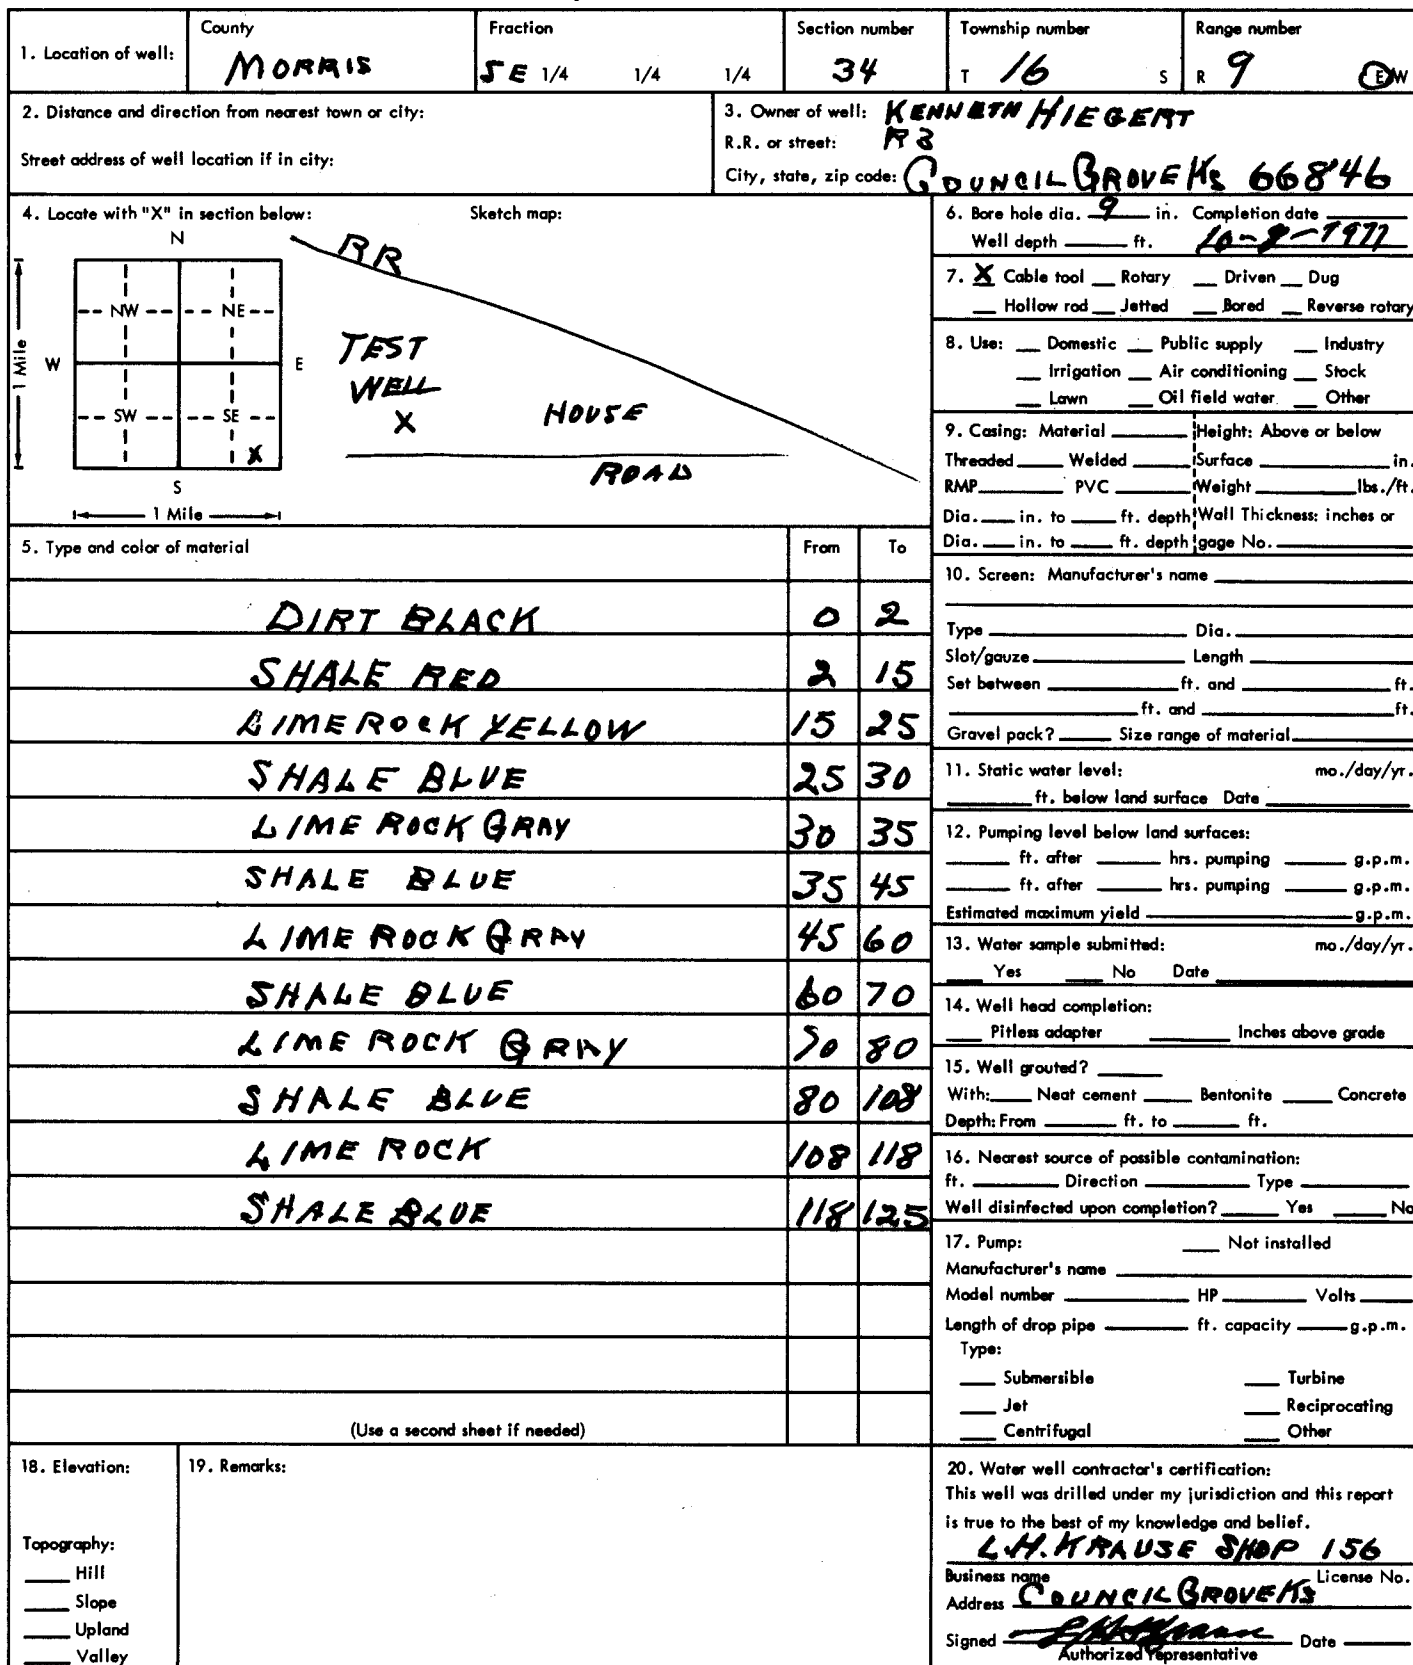 1. Location of well:
County
MORRIS
Fraction
SE 1/4 1/4 1/4
Section number
34
Township number
T 16 S
Range number
R 9 E W
2. Distance and direction from nearest town or city:
Street address of well location if in city:
3. Owner of well: KENNETH HIEGERT
R.R. or street: R 3
City, state, zip code: COUNCIL GROVE Ks 66846
4. Locate with "X" in section below:
Sketch map:
N
NW NE
W E
SW SE
X
S
1 Mile
1 Mile
RR
TEST
WELL
X
HOUSE
ROAD
6. Bore hole dia. 9 in. Completion date
Well depth ____ ft. 10-9-1977
7. X Cable tool __ Rotary __ Driven __ Dug
__ Hollow rod __ Jetted __ Bored __ Reverse rotary
8. Use: __ Domestic __ Public supply __ Industry
__ Irrigation __ Air conditioning __ Stock
__ Lawn __ Oil field water __ Other
9. Casing: Material ____ Height: Above or below
Threaded ____ Welded ____ Surface ____ in.
RMP ____ PVC ____ Weight ____ lbs./ft.
Dia. ____ in. to ____ ft. depth Wall Thickness: inches or
Dia. ____ in. to ____ ft. depth gage No. ____
5. Type and color of material From To
DIRT BLACK 0 2
SHALE RED 2 15
LIMEROCK YELLOW 15 25
SHALE BLUE 25 30
LIME ROCK GRAY 30 35
SHALE BLUE 35 45
LIME ROCK GRAY 45 60
SHALE BLUE 60 70
LIME ROCK GRAY 70 80
SHALE BLUE 80 108
LIME ROCK 108 118
SHALE BLUE 118 125
(Use a second sheet if needed)
10. Screen: Manufacturer's name ____
Type ____ Dia. ____
Slot/gauze ____ Length ____
Set between ____ ft. and ____ ft.
____ ft. and ____ ft.
Gravel pack? ____ Size range of material ____
11. Static water level: mo./day/yr.
____ ft. below land surface Date ____
12. Pumping level below land surfaces:
____ ft. after ____ hrs. pumping ____ g.p.m.
____ ft. after ____ hrs. pumping ____ g.p.m.
Estimated maximum yield ____ g.p.m.
13. Water sample submitted: mo./day/yr.
____ Yes ____ No Date ____
14. Well head completion:
____ Pitless adapter ____ Inches above grade
15. Well grouted? ____
With: ____ Neat cement ____ Bentonite ____ Concrete
Depth: From ____ ft. to ____ ft.
16. Nearest source of possible contamination:
ft. ____ Direction ____ Type ____
Well disinfected upon completion? ____ Yes ____ No
17. Pump: ____ Not installed
Manufacturer's name ____
Model number ____ HP ____ Volts ____
Length of drop pipe ____ ft. capacity ____ g.p.m.
Type:
____ Submersible ____ Turbine
____ Jet ____ Reciprocating
____ Centrifugal ____ Other
18. Elevation:
Topography:
____ Hill
____ Slope
____ Upland
____ Valley
19. Remarks:
20. Water well contractor's certification:
This well was drilled under my jurisdiction and this report
is true to the best of my knowledge and belief.
L.H. KRAUSE SHOP 156
Business name License No.
Address COUNCIL GROVE Ks
Signed L H Krause Date ____
Authorized representative